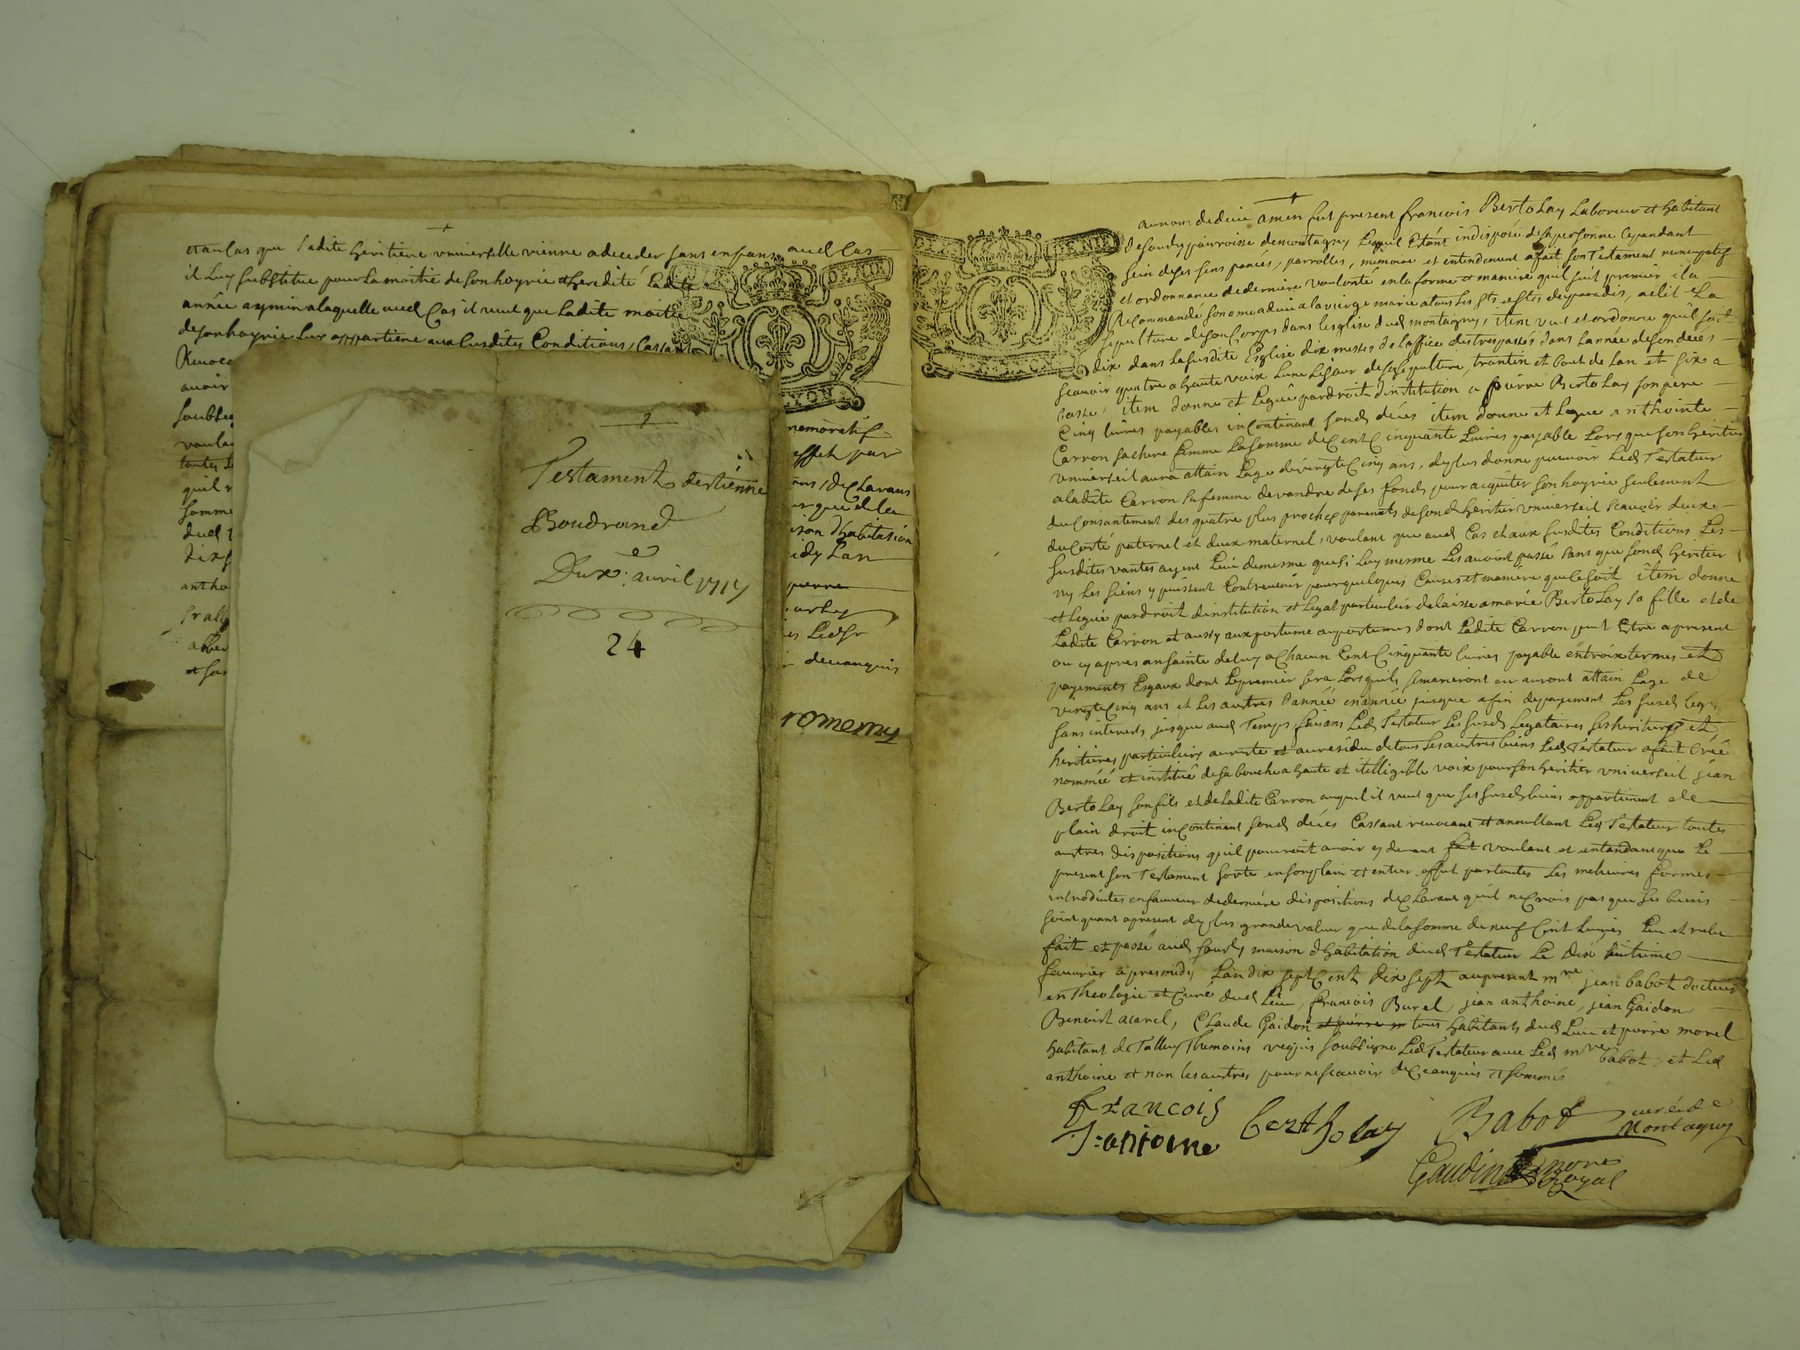 et au cas que ladite heritiere universelle vienne a deceder sans enfans aud Cas
il luy substitue pour la moitié de son hoyrie et heredité
aud Cas il veut que ladite moitié
de son hoyrie luy appartiene aux susdites Conditions, Cassan
avoir
quil
somme
dud
antho
et
DE
LYON
memoratif
effet par
declarant
que de la
son d'habitation
midy Lan
pierre
ledsr
de ce enquis
romemy
Testament destienne
Boudrand
Dux.e avril 1717
24
DE
GENE
au nom de dieu amen fut present françois Bertolay Laboreur et habitant
de sourdy parroisse de montagny Lequel Estant indisposé de sa personne Cependant
sein de ses sens pencés, parrolles, memoire et entendement a fait son Testament noncupatif
et ordonnance de derniere voulonté en la forme et maniere quil suit premier il a
Recommandé son ame a dieu a la vierge marie a tous les sts et stes de paradis, a elit sa
sepulture de son Corps dans leglise dud montagny, item veut et ordonne quil soit
dix dans la susdite Esglise dix messes de loffice des trespassés dans lannée de son deces
scavoir quatre a haute voix lune le jour de sa sepulture, trentin et bout de lan et six a
basse, item donne et legue par droit dinstitution a pierre Bertolay son pere
Cinq livres payables incontinant sond deces item donne et legue a anthointe
Carron sa chere femme la somme de Cent Cinquante Livres payable Lors que son heritier
universel aura attain Lage de vingt Cinq ans, de plus donne pouvoir Led Testateur
a ladite Carron sa femme de vandre de ses fonds pour aquiter son hoyrie seulement
du Consantement des quatre plus proches parents de sond heritier universel scavoir deux
du Costé paternel et deux maternel, voulant que aud Cas et aux susdites Conditions Les
susdites vantes ayent Lieu de mesme que si luy mesme Les avoint passé sans que sond heritier
ny les siens y puissent Contrevenir pour quelques Causes et maniere que Ce soit item donne
et legue par droit dinstitution et legat particulier delaisse a marie Bertolay sa fille et de
Ladite Carron et aussy aux postume ou postumes dont Ladite Carron peut Estre a present
ou cy apres ansainte de luy a Chacun Cent Cinquante livres payable en trois termes et
payements Esgaux dont Le premier sera Lors quils se marieront ou auront attain Lage de
vingt Cinq ans et les autres dannée en année jusque a fin de payement Les susd legs
sans interets jusque aud temps faisans Led Testateur Les susd Legataires ses heritiers et
heritieres particuliers au reste et au residu de tous Les autres biens Led Testateur a fait Créé
nommée et institué de sa bouche a haute et itelligible voix pour son heritier universeil jean
Bertolay son fils et de Ladite Carron auquel il veut que ses susd biens appartienent de
plain droit incontinent sond deces Cassant revocant et annullant Led Testateur toutes
autres dispositions quil pourroit avoir cy devant fait voulant et entendant que Le
present son Testament sorte en son plain et entier effet par toutes Les meliures formes
introduites en faveur de derniere dispositions declarant quil ne Crois pas que ses biens
soint quant apresent de plus grande valeur que de la somme de neuf Cent Livres Leu et relu
fait et passé aud sourdy maison dhabitation dud Testateur Le dix huitieme
fevvrier apres midy Lan dix sept Cent dix sept au present mre jean babot docteur
en Theologie et Curé dud Lieu, francois Burel, jean anthoine, jean Gaidon
Benoist Claude Gaidon et pierre m tous habitants dud Lieu et pierre morel
habitant de Talluy Themoins requis soubsigne Led Testateur avec Led mre babot, et Led
anthoine et non les autres pour ne scavoir de Ce anquis et sommés
francois
J: antoine
bertholay
Babot
curé de
Montagny
Gaudin
Royal